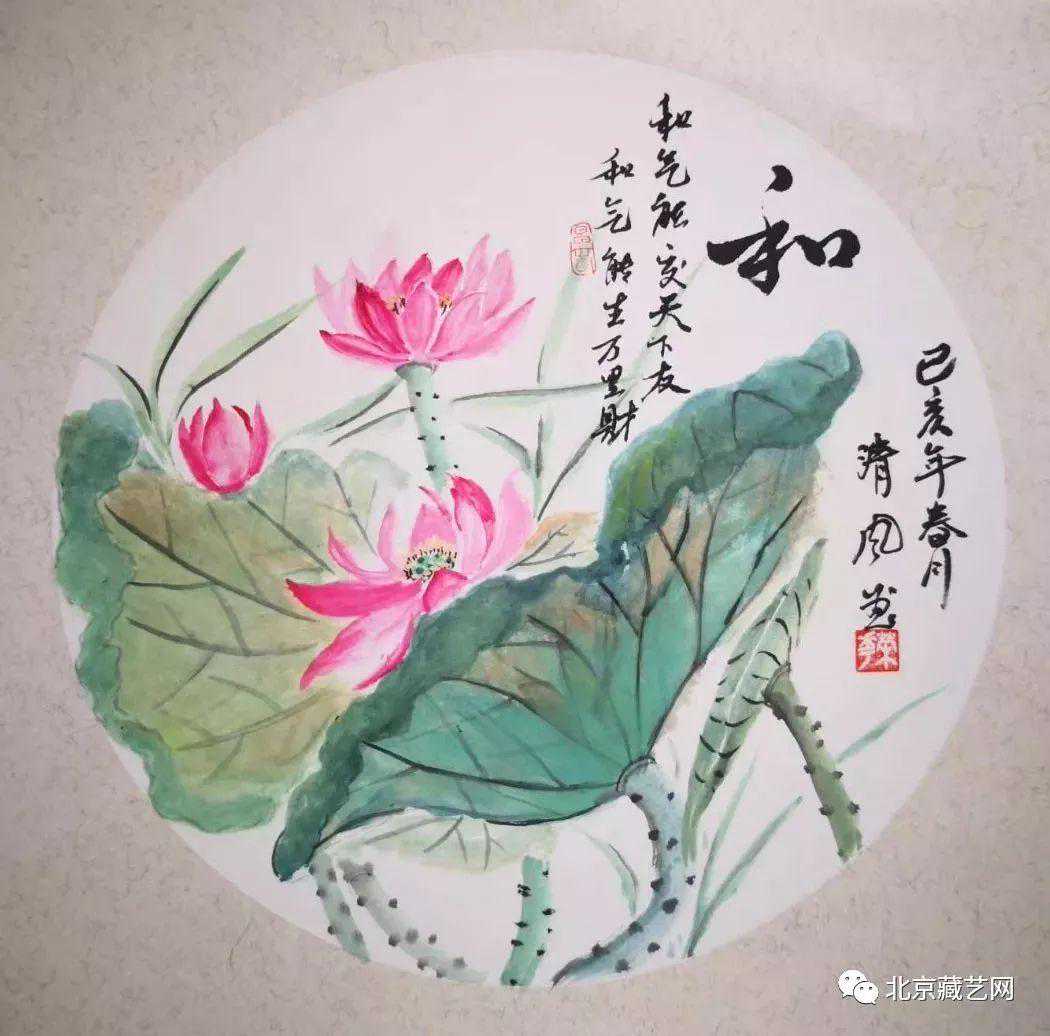 和
和气能交天下友
和气能生万里财
己亥年春月
清风画
北京藏艺网